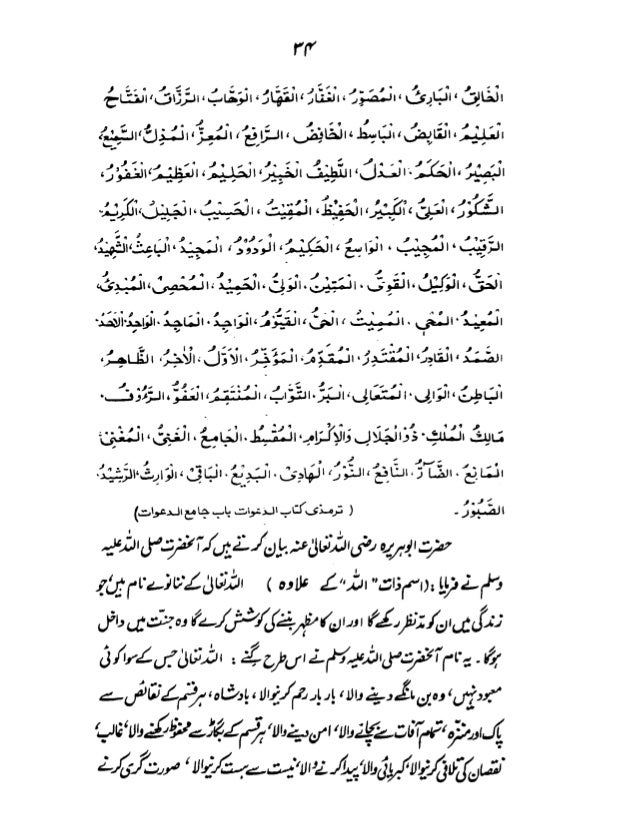 ۳۴
الْخَالِقُ، الْبَارِئُ، الْمُصَوِّرُ، الْغَفَّارُ، الْقَهَّارُ، الْوَهَّابُ، الرَّزَّاقُ، الْفَتَّاحُ
الْعَلِيْمُ، الْقَابِضُ، الْبَاسِطُ، الْخَافِضُ، الرَّافِعُ، الْمُعِزُّ، الْمُذِلُّ، السَّمِيْعُ،
الْبَصِيْرُ، الْحَكَمُ، الْعَدْلُ، اللَّطِيْفُ الْخَبِيْرُ، الْحَلِيْمُ، الْعَظِيْمُ، الْغَفُوْرُ،
الشَّكُوْرُ، الْعَلِيُّ، الْكَبِيْرُ، الْحَفِيْظُ، الْمُقِيْتُ، الْحَسِيْبُ، الْجَلِيْلُ، الْكَرِيْمُ،
الرَّقِيْبُ، الْمُجِيْبُ، الْوَاسِعُ، الْحَكِيْمُ، الْوَدُوْدُ، الْمَجِيْدُ، الْبَاعِثُ، الشَّهِيْدُ،
الْحَقُّ، الْوَكِيْلُ، الْقَوِيُّ، الْمَتِيْنُ، الْوَلِيُّ، الْحَمِيْدُ، الْمُحْصِيْ، الْمُبْدِئُ،
الْمُعِيْدُ، الْمُحْيِ، الْمُمِيْتُ، الْحَيُّ، الْقَيُّوْمُ، الْوَاجِدُ، الْمَاجِدُ، الْوَاحِدُ، الْاَحَدُ،
الصَّمَدُ، الْقَادِرُ، الْمُقْتَدِرُ، الْمُقَدِّمُ، الْمُؤَخِّرُ، الْاَوَّلُ، الْاٰخِرُ، الظَّاهِرُ،
الْبَاطِنُ، الْوَالِي، الْمُتَعَالِي، الْبَرُّ، التَّوَّابُ، الْمُنْتَقِمُ، الْعَفُوُّ، الرَّءُوْفُ،
مَالِكُ الْمُلْكِ، ذُوالْجَلَالِ وَالْاِكْرَامِ، الْمُقْسِطُ، الْجَامِعُ، الْغَنِيُّ، الْمُغْنِيْ،
الْمَانِعُ، الضَّآرُّ، النَّافِعُ، النُّوْرُ، الْهَادِيْ، الْبَدِيْعُ، الْبَاقِيْ، الْوَارِثُ، الرَّشِيْدُ،
الصَّبُوْرُ۔ (ترمذی کتاب الدعوات باب جامع الدعوات)
حضرت ابوہریرہ رضی اللہ تعالیٰ عنہ بیان کرتے ہیں کہ آنحضرت صلی اللہ علیہ
وسلم نے فرمایا: (اسم ذات "اللہ" کے علاوہ) اللہ تعالیٰ کے ننانوے نام ہیں، جو
زندگی میں ان کو مدّنظر رکھے گا اور ان کا مظہر بننے کی کوشش کرے گا وہ جنّت میں داخل
ہوگا۔ یہ نام آنحضرت صلی اللہ علیہ وسلم نے اس طرح گنے: اللہ تعالیٰ جس کے سوا کوئی
معبود نہیں، وہ بن مانگے دینے والا، بار بار رحم کرنیوالا، بادشاہ، ہر قسم کے نقائص سے
پاک اور منزّہ، تمام آفات سے بچانے والا، امن دینے والا، ہر قسم کے بگاڑ سے محفوظ رکھنے والا، غالب،
نقصان کی تلافی کرنیوالا، کبریائی والا، پیدا کرنے والا، نیست سے ہست کرنیوالا، صورت گری کرنے